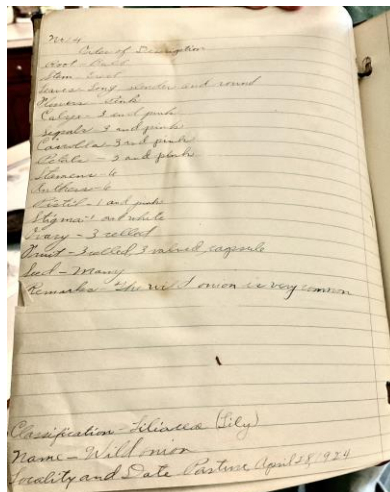 No. 4
Order of Description
Root - Bulb
Stem - Erect
Leaves - Long slender and round
Flowers - Pink
Calyx - 3 and pink
Sepals 3 and pink
Corolla - 3 and pink
Petals - 3 and pink
Stamens - 6
Anthers - 6
Pistil - 1 and pink
Stigma - 1 and white
Ovary - 3 celled
Fruit - 3 celled, 3 valved capsule
Seed - Many
Remarks - The wild onion is very common
Classification - Liliaceae (Lily)
Name - Wild onion
Locality and Date Pasture April 28, 1924